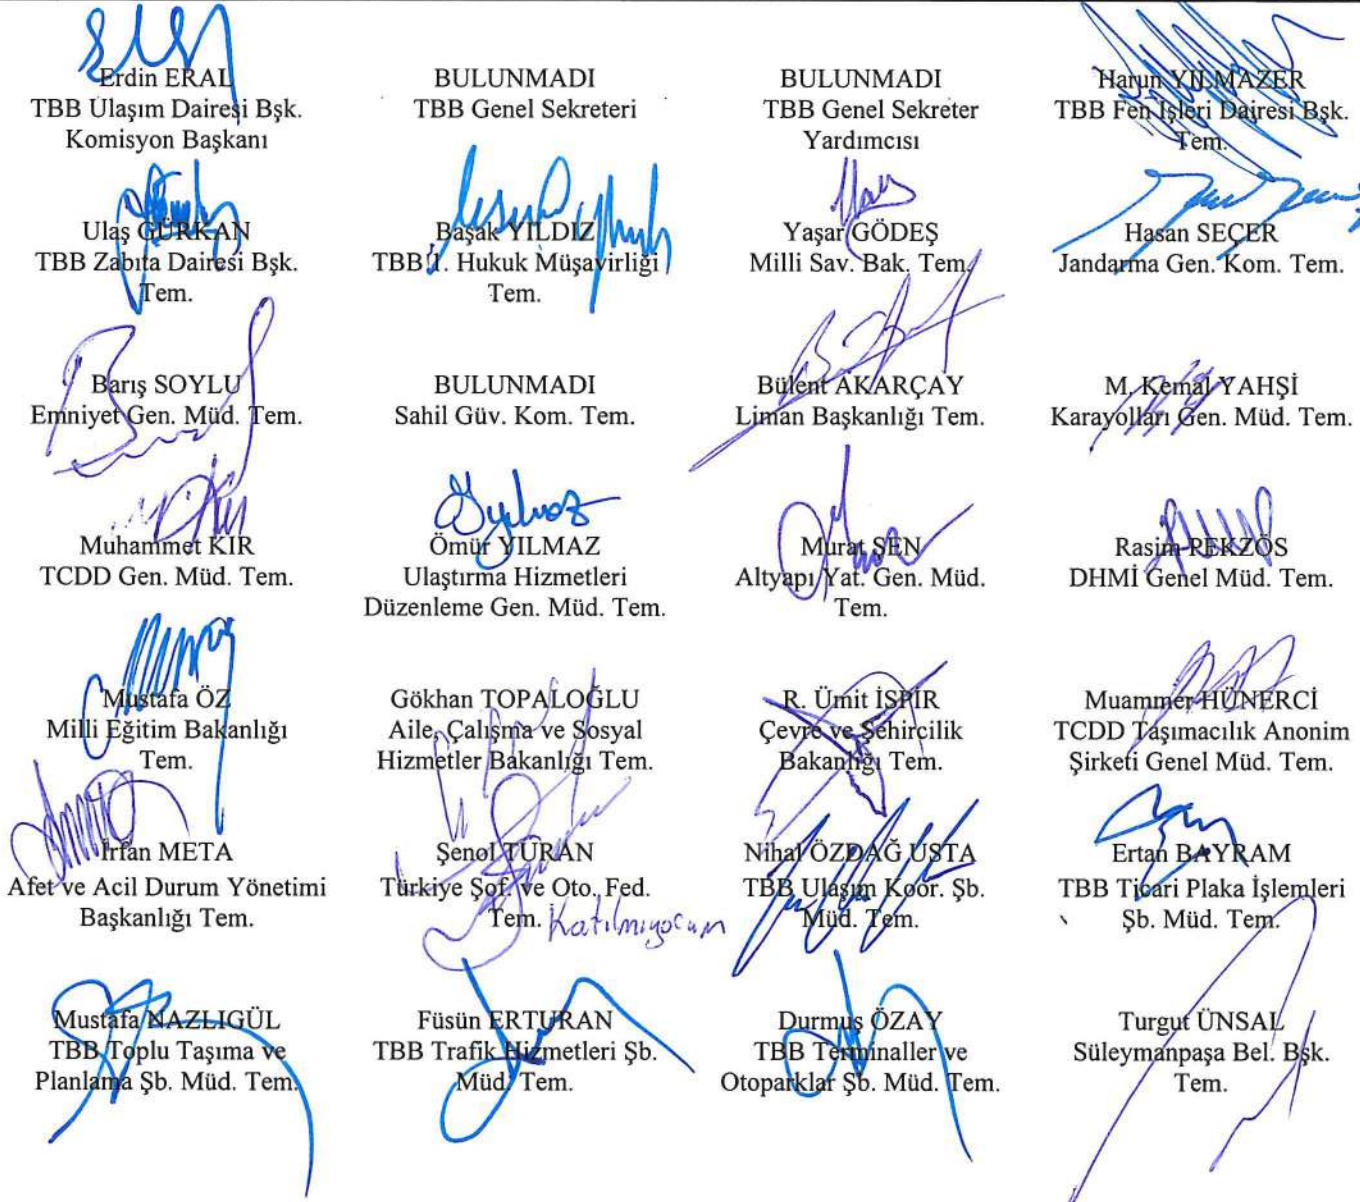 Erdin ERAL
TBB Ulaşım Dairesi Bşk.
Komisyon Başkanı
BULUNMADI
TBB Genel Sekreteri
BULUNMADI
TBB Genel Sekreter
Yardımcısı
Harun YILMAZER
TBB Fen İşleri Dairesi Bşk.
Tem.
Ulaş GÜRKAN
TBB Zabıta Dairesi Bşk.
Tem.
Başak YILDIZ
TBB 1. Hukuk Müşavirliği
Tem.
Yaşar GÖDEŞ
Milli Sav. Bak. Tem.
Hasan SEÇER
Jandarma Gen. Kom. Tem.
Barış SOYLU
Emniyet Gen. Müd. Tem.
BULUNMADI
Sahil Güv. Kom. Tem.
Bülent AKARÇAY
Liman Başkanlığı Tem.
M. Kemal YAHŞİ
Karayolları Gen. Müd. Tem.
Muhammet KIR
TCDD Gen. Müd. Tem.
Ömür YILMAZ
Ulaştırma Hizmetleri
Düzenleme Gen. Müd. Tem.
Murat ŞEN
Altyapı Yat. Gen. Müd.
Tem.
Rasim PEKZÖS
DHMİ Genel Müd. Tem.
Mustafa ÖZ
Milli Eğitim Bakanlığı
Tem.
Gökhan TOPALOĞLU
Aile, Çalışma ve Sosyal
Hizmetler Bakanlığı Tem.
R. Ümit İSPİR
Çevre ve Şehircilik
Bakanlığı Tem.
Muammer HÜNERCİ
TCDD Taşımacılık Anonim
Şirketi Genel Müd. Tem.
İrfan META
Afet ve Acil Durum Yönetimi
Başkanlığı Tem.
Şenol TURAN
Türkiye Şof. ve Oto. Fed.
Tem. Katılmıyorum
Nihal ÖZDAĞ USTA
TBB Ulaşım Koor. Şb.
Müd. Tem.
Ertan BAYRAM
TBB Ticari Plaka İşlemleri
Şb. Müd. Tem.
Mustafa NAZLIGÜL
TBB Toplu Taşıma ve
Planlama Şb. Müd. Tem.
Füsün ERTURAN
TBB Trafik Hizmetleri Şb.
Müd. Tem.
Durmuş ÖZAY
TBB Terminaller ve
Otoparklar Şb. Müd. Tem.
Turgut ÜNSAL
Süleymanpaşa Bel. Bşk.
Tem.